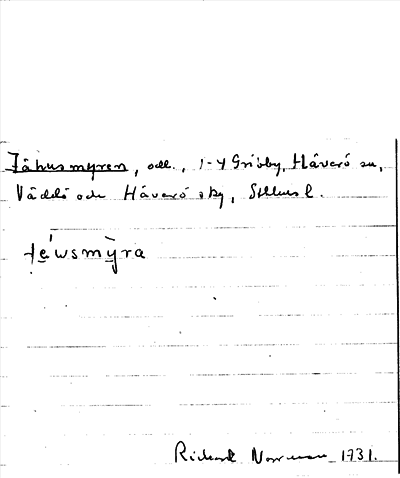 Fåhusmyren, odl., 1-4 Gribby, Häverö sn,
Väddö och Häverö skg, Sthlms l.
fé̱wsmy̱ra
Richard Norrman 1931.